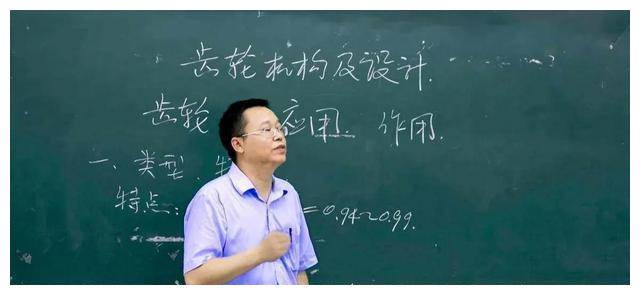 齿轮机构及设计.
齿轮 应用. 作用.
一、类型、特
特点: =0.94~0.99.